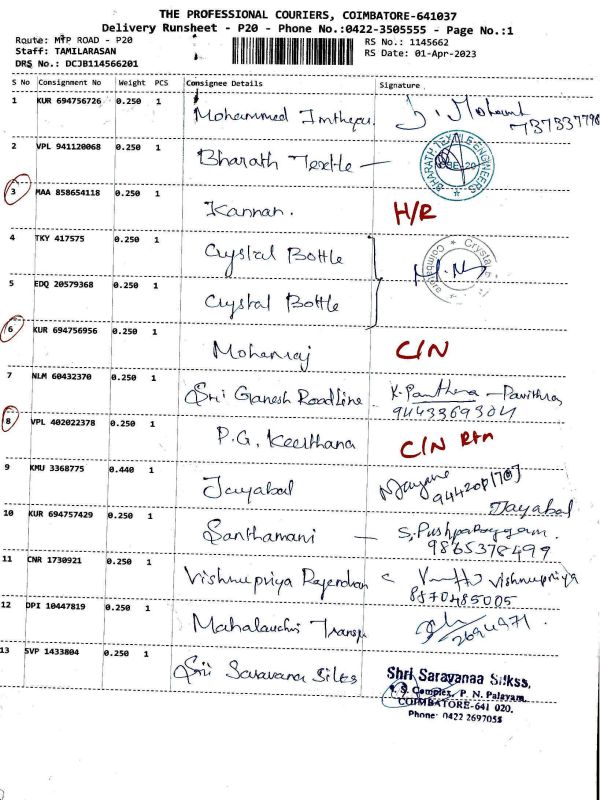 THE PROFESSIONAL COURIERS, COIMBATORE-641037
Delivery Runsheet - P20 - Phone No.:0422-3505555 - Page No.:1
Route: MTP ROAD - P20 RS No.: 1145662
Staff: TAMILARASAN RS Date: 01-Apr-2023
DRS No.: DCJB114566201
S No Consignment No Weight PCS Consignee Details Signature
1 KUR 694756726 0.250 1 Mohammed
2 VPL 941120068 0.250 1 Bharath Textile - BHARATH TEXTILE ENGINEERS
3 MAA 858654118 0.250 1 Kannan. H/R
4 TKY 417575 0.250 1 Crystal Bottle
5 EDQ 20579368 0.250 1 Crystal Bottle
6 KUR 694756956 0.250 1 Mohanraj C/N
7 NLM 60432370 0.250 1 Sri Ganesh RoadLine K. - Pavithra
9443369304
8 VPL 402022378 0.250 1 P.G. Keerthana C/N Rtn
9 KMU 3368775 0.440 1 Jayabal
Jayabal
10 KUR 694757429 0.250 1 Santhamani -
9865378499
11 CNR 1730921 0.250 1 Vishnupriya Rajendran Vishnupriya
8870485005
12 DPI 10447819 0.250 1
2694971.
13 SVP 1433804 0.250 1 Sri Saravana Silks Shri Sarayanaa Silkss,
Complex, P. N. Palayam,
COIMBATORE-641 020.
Phone: 0422 2697055